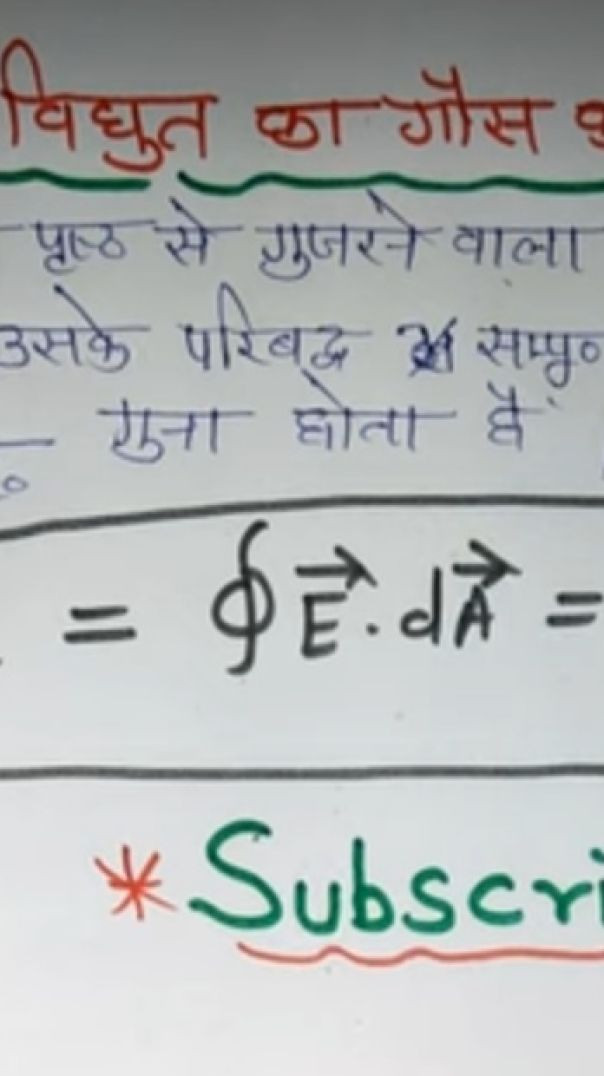 विद्युत का गौस
पृष्ठ से गुजरने वाला
उसके परिबद्ध सम्पू
गुना होता है
= ∮ E⃗ . dA⃗ =
* Subscri